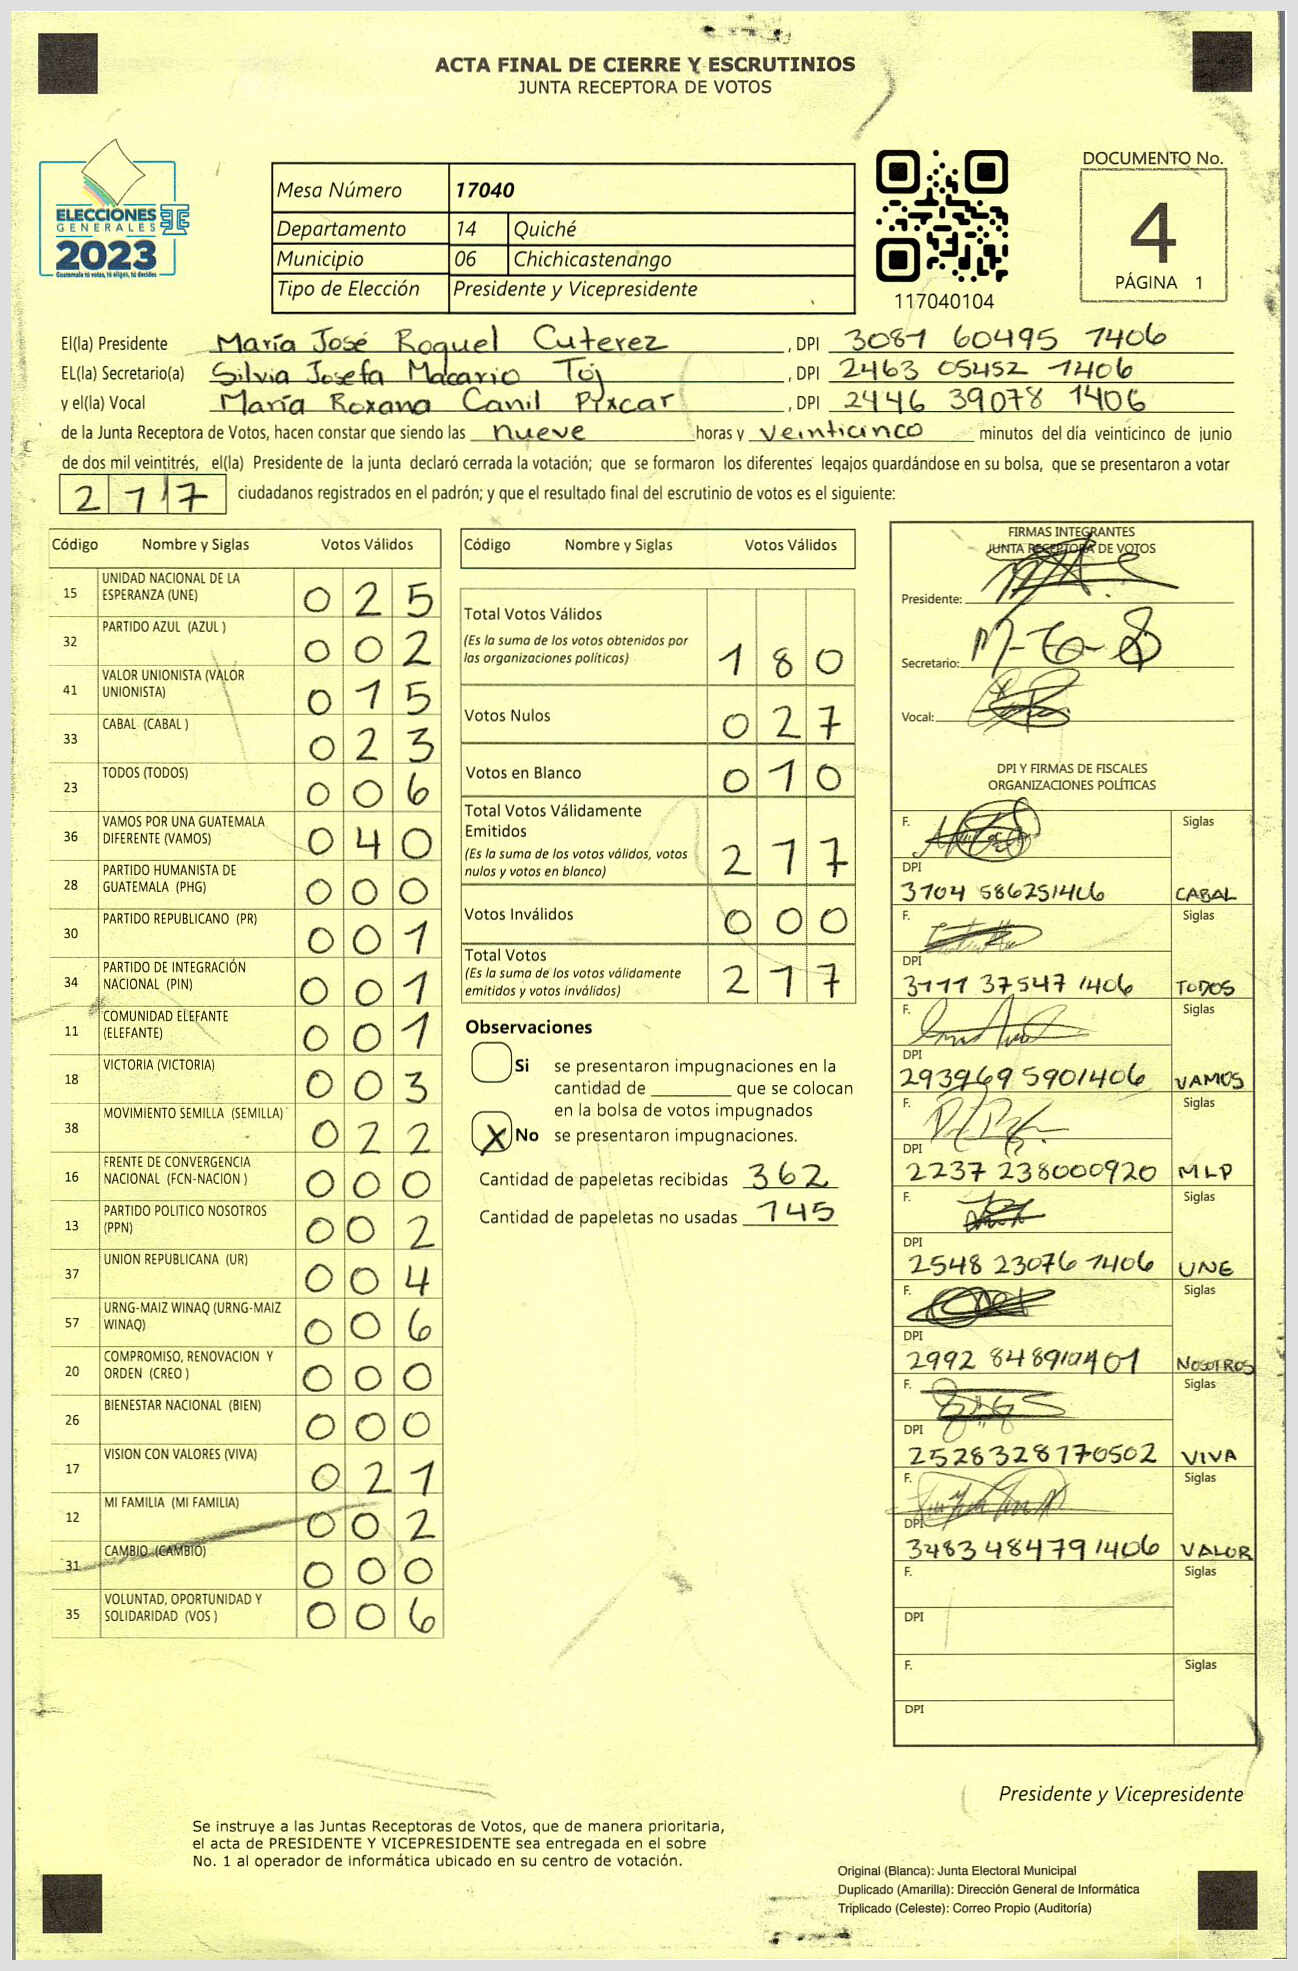 ACTA FINAL DE CIERRE Y ESCRUTINIOS
JUNTA RECEPTORA DE VOTOS
ELECCIONES
GENERALES
2023
Guatemala tú votas, tú eliges, tú decides
Mesa Número 17040
Departamento 14 Quiché
Municipio 06 Chichicastenango
Tipo de Elección Presidente y Vicepresidente
117040104
DOCUMENTO No.
4
PÁGINA 1
El(la) Presidente María José Roquel Cuterez , DPI 3081 60495 1406
EL(la) Secretario(a) Silvia Josefa Macario Toj , DPI 2463 05452 1406
y el(la) Vocal María Roxana Canil Pixcar , DPI 2446 39078 1406
de la Junta Receptora de Votos, hacen constar que siendo las nueve horas y veinticinco minutos del día veinticinco de junio
de dos mil veintitrés, el(la) Presidente de la junta declaró cerrada la votación; que se formaron los diferentes legajos quardándose en su bolsa, que se presentaron a votar
217 ciudadanos registrados en el padrón; y que el resultado final del escrutinio de votos es el siguiente:
Código Nombre y Siglas Votos Válidos
15 UNIDAD NACIONAL DE LA ESPERANZA (UNE) 025
32 PARTIDO AZUL (AZUL ) 002
41 VALOR UNIONISTA (VALOR UNIONISTA) 015
33 CABAL (CABAL ) 023
23 TODOS (TODOS) 006
36 VAMOS POR UNA GUATEMALA DIFERENTE (VAMOS) 040
28 PARTIDO HUMANISTA DE GUATEMALA (PHG) 000
30 PARTIDO REPUBLICANO (PR) 001
34 PARTIDO DE INTEGRACIÓN NACIONAL (PIN) 001
11 COMUNIDAD ELEFANTE (ELEFANTE) 001
18 VICTORIA (VICTORIA) 003
38 MOVIMIENTO SEMILLA (SEMILLA) 022
16 FRENTE DE CONVERGENCIA NACIONAL (FCN-NACION ) 000
13 PARTIDO POLITICO NOSOTROS (PPN) 002
37 UNION REPUBLICANA (UR) 004
57 URNG-MAIZ WINAQ (URNG-MAIZ WINAQ) 006
20 COMPROMISO, RENOVACION Y ORDEN (CREO ) 000
26 BIENESTAR NACIONAL (BIEN) 000
17 VISION CON VALORES (VIVA) 021
12 MI FAMILIA (MI FAMILIA) 002
31 CAMBIO (CAMBIO) 000
35 VOLUNTAD, OPORTUNIDAD Y SOLIDARIDAD (VOS ) 006
Código Nombre y Siglas Votos Válidos
Total Votos Válidos
(Es la suma de los votos obtenidos por
las organizaciones políticas) 180
Votos Nulos 027
Votos en Blanco 010
Total Votos Válidamente
Emitidos
(Es la suma de los votos válidos, votos
nulos y votos en blanco) 217
Votos Inválidos 000
Total Votos
(Es la suma de los votos válidamente
emitidos y votos inválidos) 217
Observaciones
Si se presentaron impugnaciones en la
cantidad de que se colocan
en la bolsa de votos impugnados
X No se presentaron impugnaciones.
Cantidad de papeletas recibidas 362
Cantidad de papeletas no usadas 145
FIRMAS INTEGRANTES
JUNTA RECEPTORA DE VOTOS
Presidente:
Secretario:
Vocal:
DPI Y FIRMAS DE FISCALES
ORGANIZACIONES POLÍTICAS
F. Siglas
DPI
3704 586251406 CABAL
F. Siglas
DPI
3111 37547 1406 TODOS
F. Siglas
DPI
2939695901406 VAMOS
F. Siglas
DPI
2237 238000920 MLP
F. Siglas
DPI
2548 23076 1406 UNE
F. Siglas
DPI
2992 848910401 NOSOTROS
F. Siglas
DPI
2528328170502 VIVA
F. Siglas
DPI
3483 48479 1406 VALOR
F. Siglas
DPI
F. Siglas
DPI
Presidente y Vicepresidente
Se instruye a las Juntas Receptoras de Votos, que de manera prioritaria,
el acta de PRESIDENTE Y VICEPRESIDENTE sea entregada en el sobre
No. 1 al operador de informática ubicado en su centro de votación.
Original (Blanca): Junta Electoral Municipal
Duplicado (Amarilla): Dirección General de Informática
Triplicado (Celeste): Correo Propio (Auditoría)